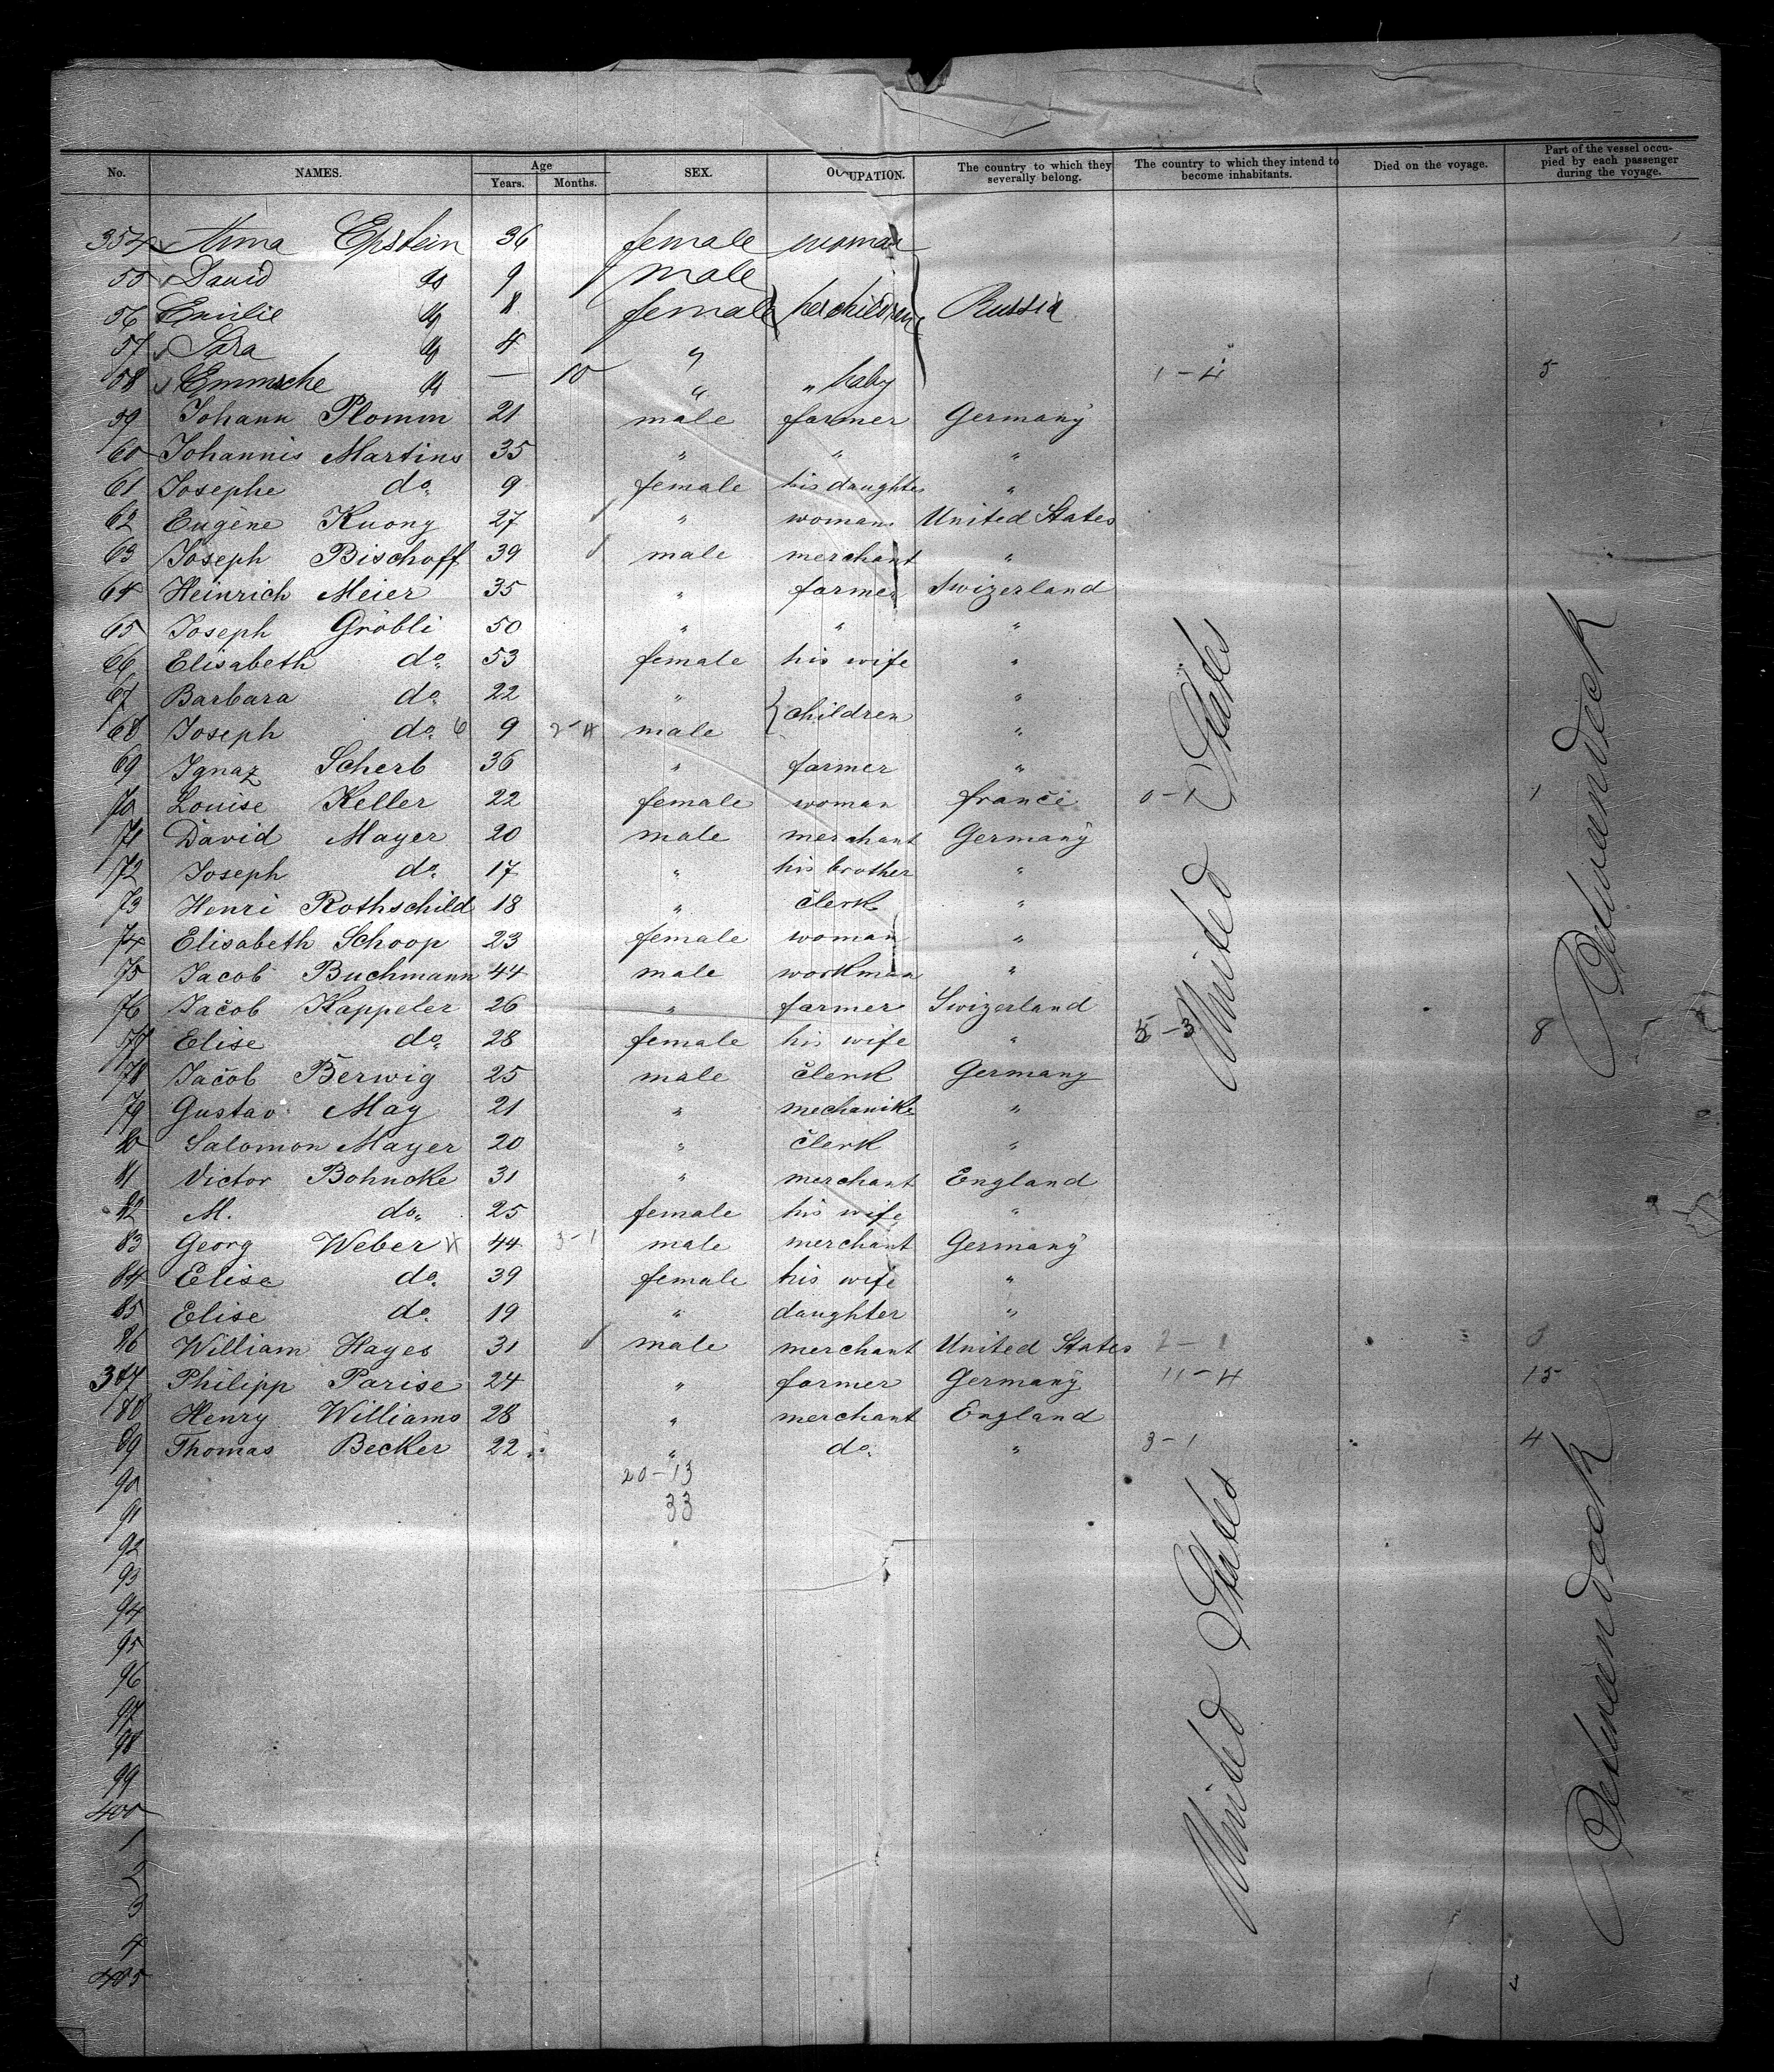 No. NAMES. Age Years. Months. SEX. OCCUPATION. The country to which they severally belong. The country to which they intend to become inhabitants. Died on the voyage. Part of the vessel occupied by each passenger during the voyage.
354 Anna Epstein 36 female woman
55 David do 9 male
56 Emilie do 8 female her children Russia
57 Sara do 4 "
58 Emmsche do — 10 " " baby 1-4 5
59 Johann Plomm 21 male farmer Germany
60 Johannis Martins 35 " " "
61 Josephe do. 9 female his daughter "
62 Eugène Kuony 27 " woman United States
63 Joseph Bischoff 39 male merchant "
64 Heinrich Meier 35 " farmer Swizerland
65 Joseph Gröbli 50 " " "
66 Elisabeth do. 53 female his wife "
67 Barbara do. 22 " children "
68 Joseph do. 6 9 2-4 male "
69 Ignaz Scherb 36 " farmer "
70 Louise Keller 22 female woman france 0-1 1
71 David Mayer 20 male merchant Germany
72 Joseph do. 17 " his brother "
73 Henri Rothschild 18 " clerk "
74 Elisabeth Schoop 23 female woman "
75 Jacob Buchmann 44 male workman "
76 Jacob Kappeler 26 " farmer Swizerland
77 Elise do. 28 female his wife " 5-3 8
78 Jacob Berwig 25 male clerk Germany
79 Gustav May 21 " mechanik. "
80 Salomon Mayer 20 " clerk "
81 Victor Bohncke 31 " merchant England
82 M. do. 25 female his wife "
83 Georg Weber 44 3-1 male merchant Germany
84 Elise do. 39 female his wife "
85 Elise do. 19 " daughter "
86 William Hayes 31 male merchant United States 2-1 3
387 Philipp Parise 24 " farmer Germany 11-4 15
88 Henry Williams 28 " merchant England
89 Thomas Becker 22 " do. " 3-1 4
90 20-13
91 33
92
93
94
95
96
97
98
99
400
1
2
3
4
405
United States
United States